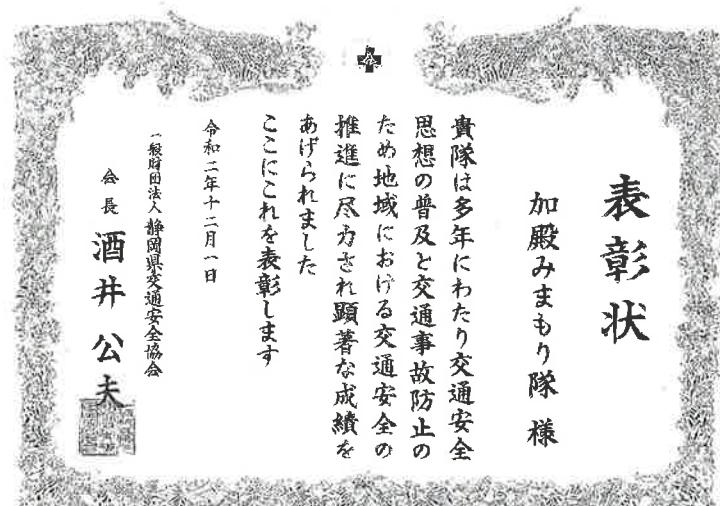 表彰状
加殿みまもり隊 様
貴隊は多年にわたり交通安全
思想の普及と交通事故防止の
ため地域における交通安全の
推進に尽力され顕著な成績を
あげられました
ここにこれを表彰します
令和二年十二月一日
一般財団法人 静岡県交通安全協会
会長 酒井公夫